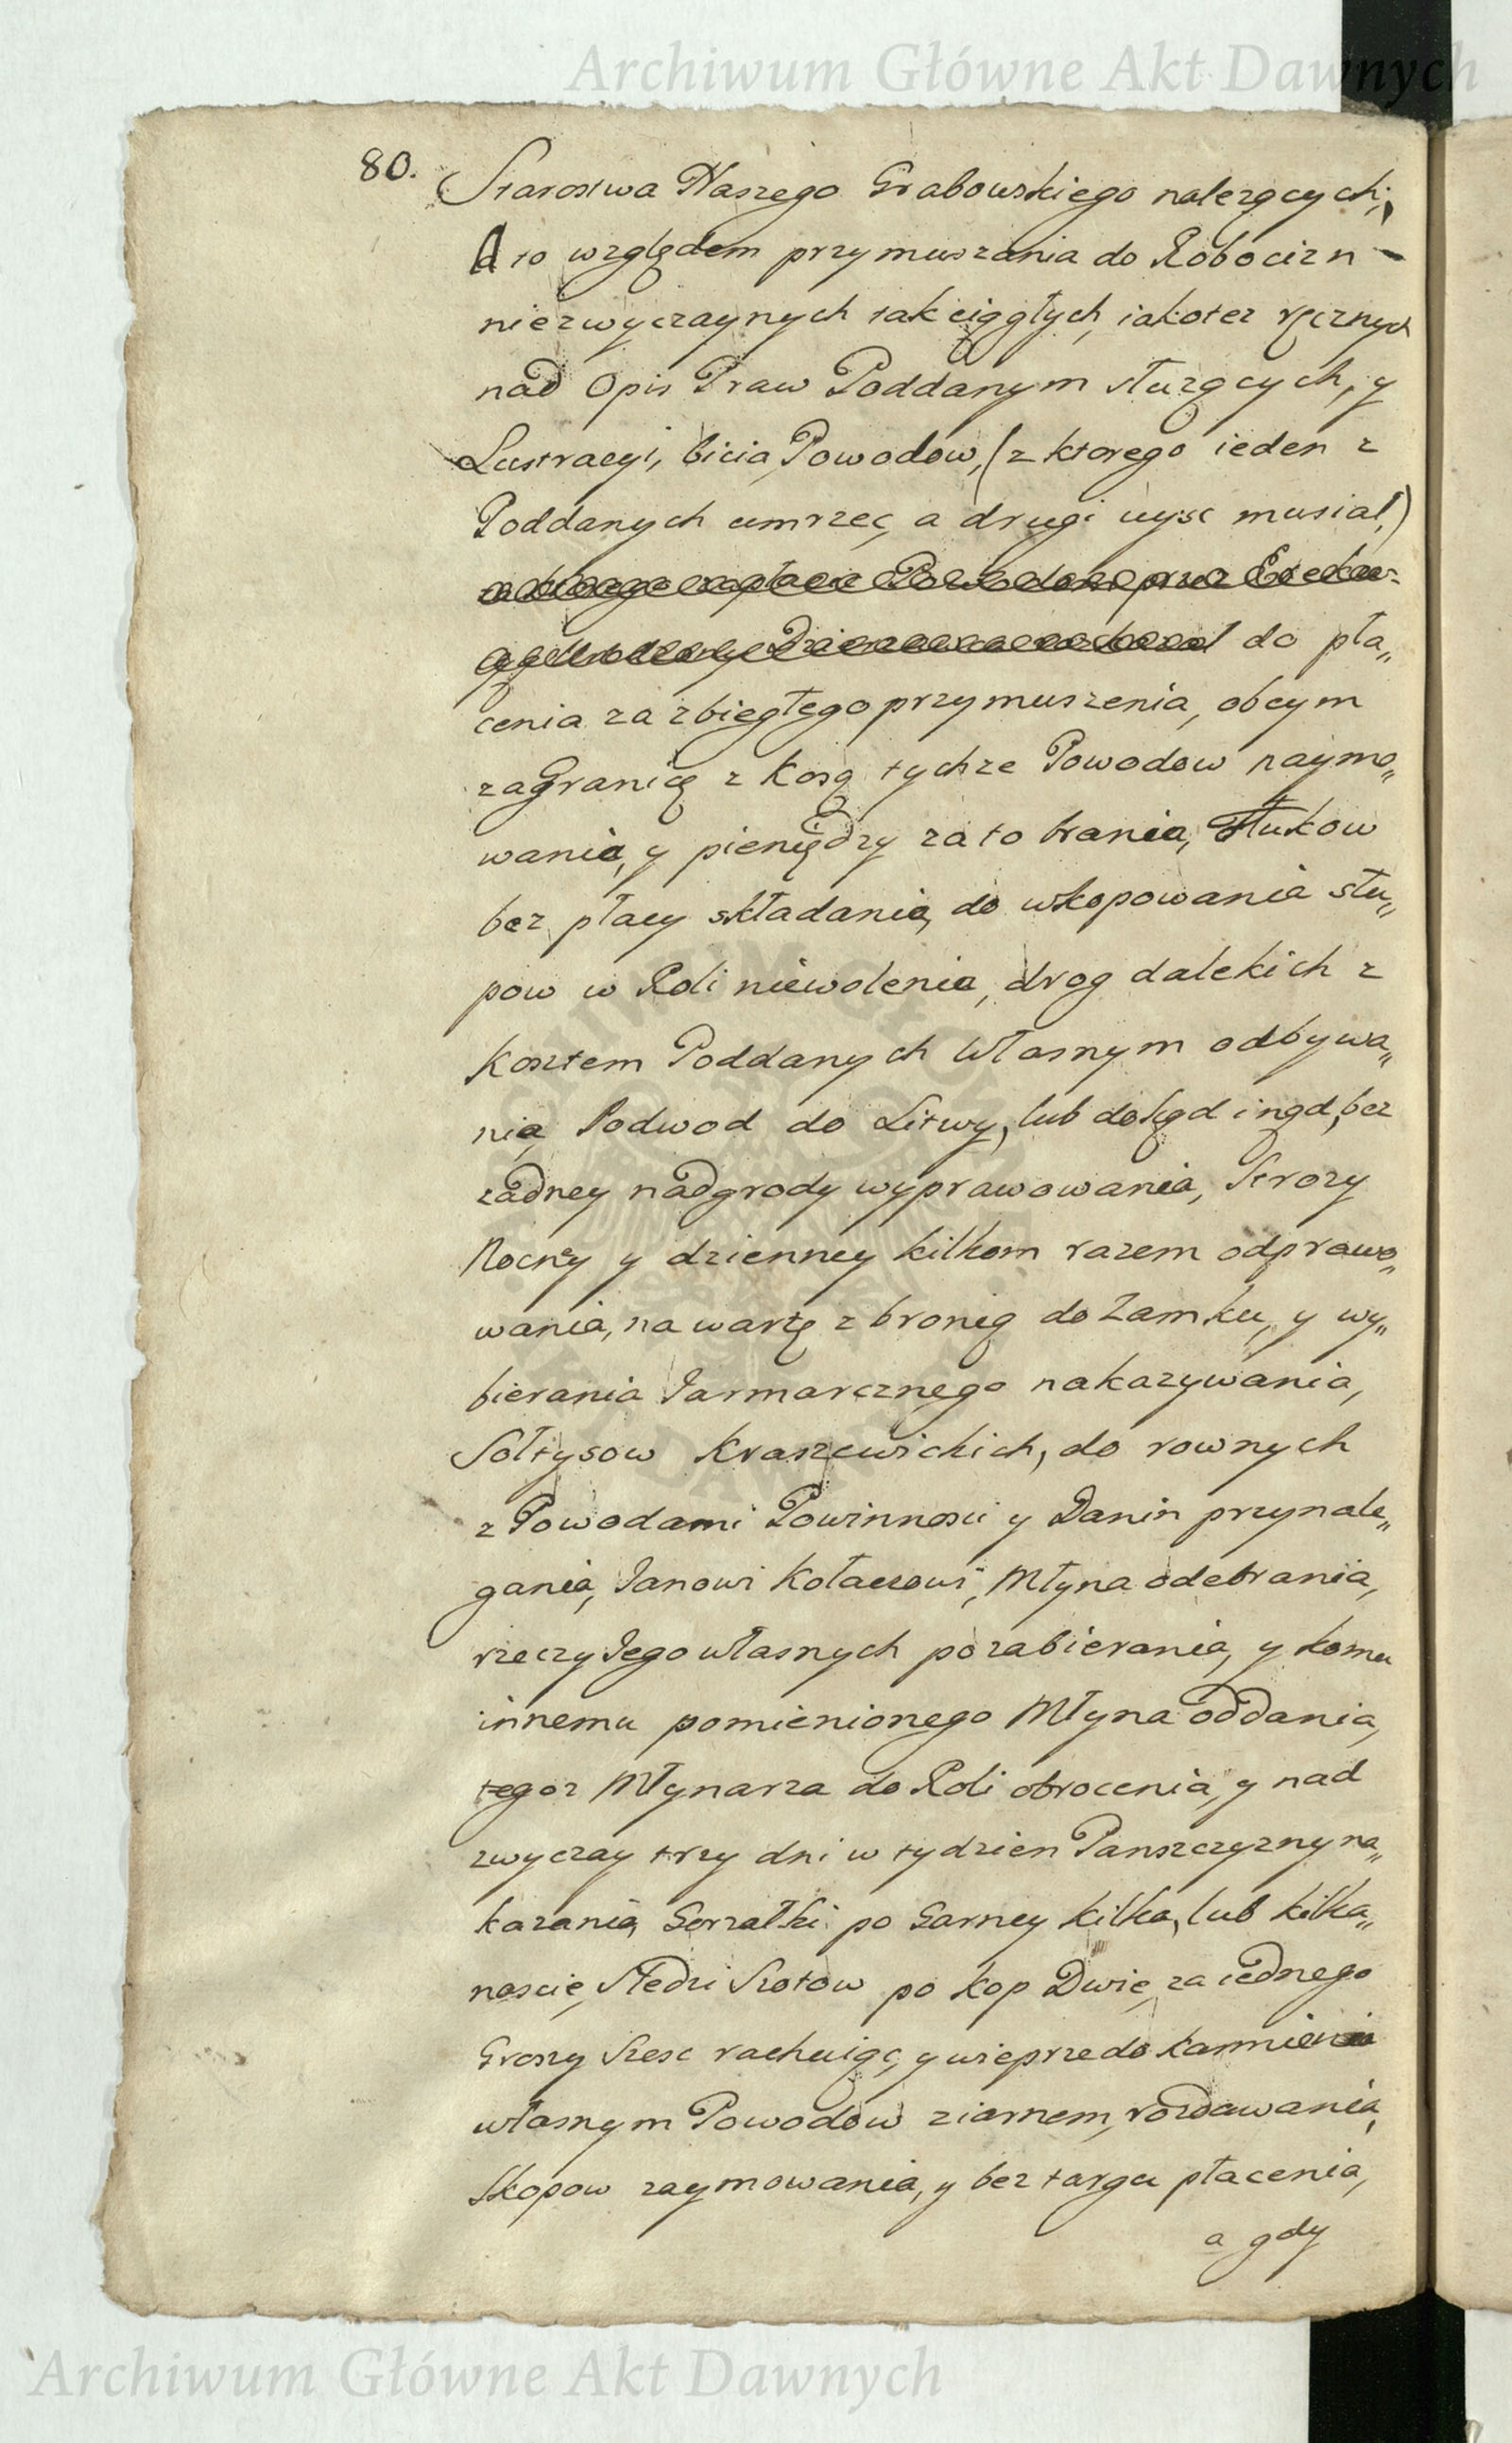 Archiwum Główne Akt Dawnych
80. Starostwa Naszego Grabowskiego nalezących;
A to względem przymuszania do Robocizn
niezwyczaynych tak ciągłych, iakotez ręcznych
nad Opis Praw Poddanym służących, y
Lustracyi, bicia Powodow, (z ktorego ieden z
Poddanych umrzec, a drugi uysc musiał,)
do pła„
cenia za zbiegłego przymuszenia, obcym
zagranicę z Kosą tychze Powodow naymo„
wania, y pieniędzy za to brania, Tłukow
bez płacy składania, do wkopowania słu„
pow w Roli niewolenia, drog dalekich z
Kosztem Poddanych własnym odbywa„
nia, Podwod do Litwy, lub dokąd inąd, bez
żadney nadgrody wyprawowania, Strozy
Nocney y dzienney kilkom razem odprawo„
wania, na wartę z bronią do Zamku, y wy„
bierania Jarmarcznego nakazywania,
Sołtysow Kraszewickich, do rownych
z Powodami Powinnosci y Danin przynale„
gania, Janowi Kołaczowi, Młyna odebrania,
rzeczy Jego własnych pozabierania, y komu
innemu pomienionego Młyna oddania,
tegoz Młynarza do Roli obrocenia, y nad
zwyczay trzy dni w tydzien Panszczyzny na„
kazania, Gorzałki po Garncy kilka, lub kilka„
nascie, Sledzi Szotow po kop Dwie, za iednego
Groszy Szesc rachuiąc, y wieprze do karmienia
własnym Powodow ziarnem, rozdawania,
Skopow zaymowania, y bez targu płacenia,
a gdy
Archiwum Główne Akt Dawnych